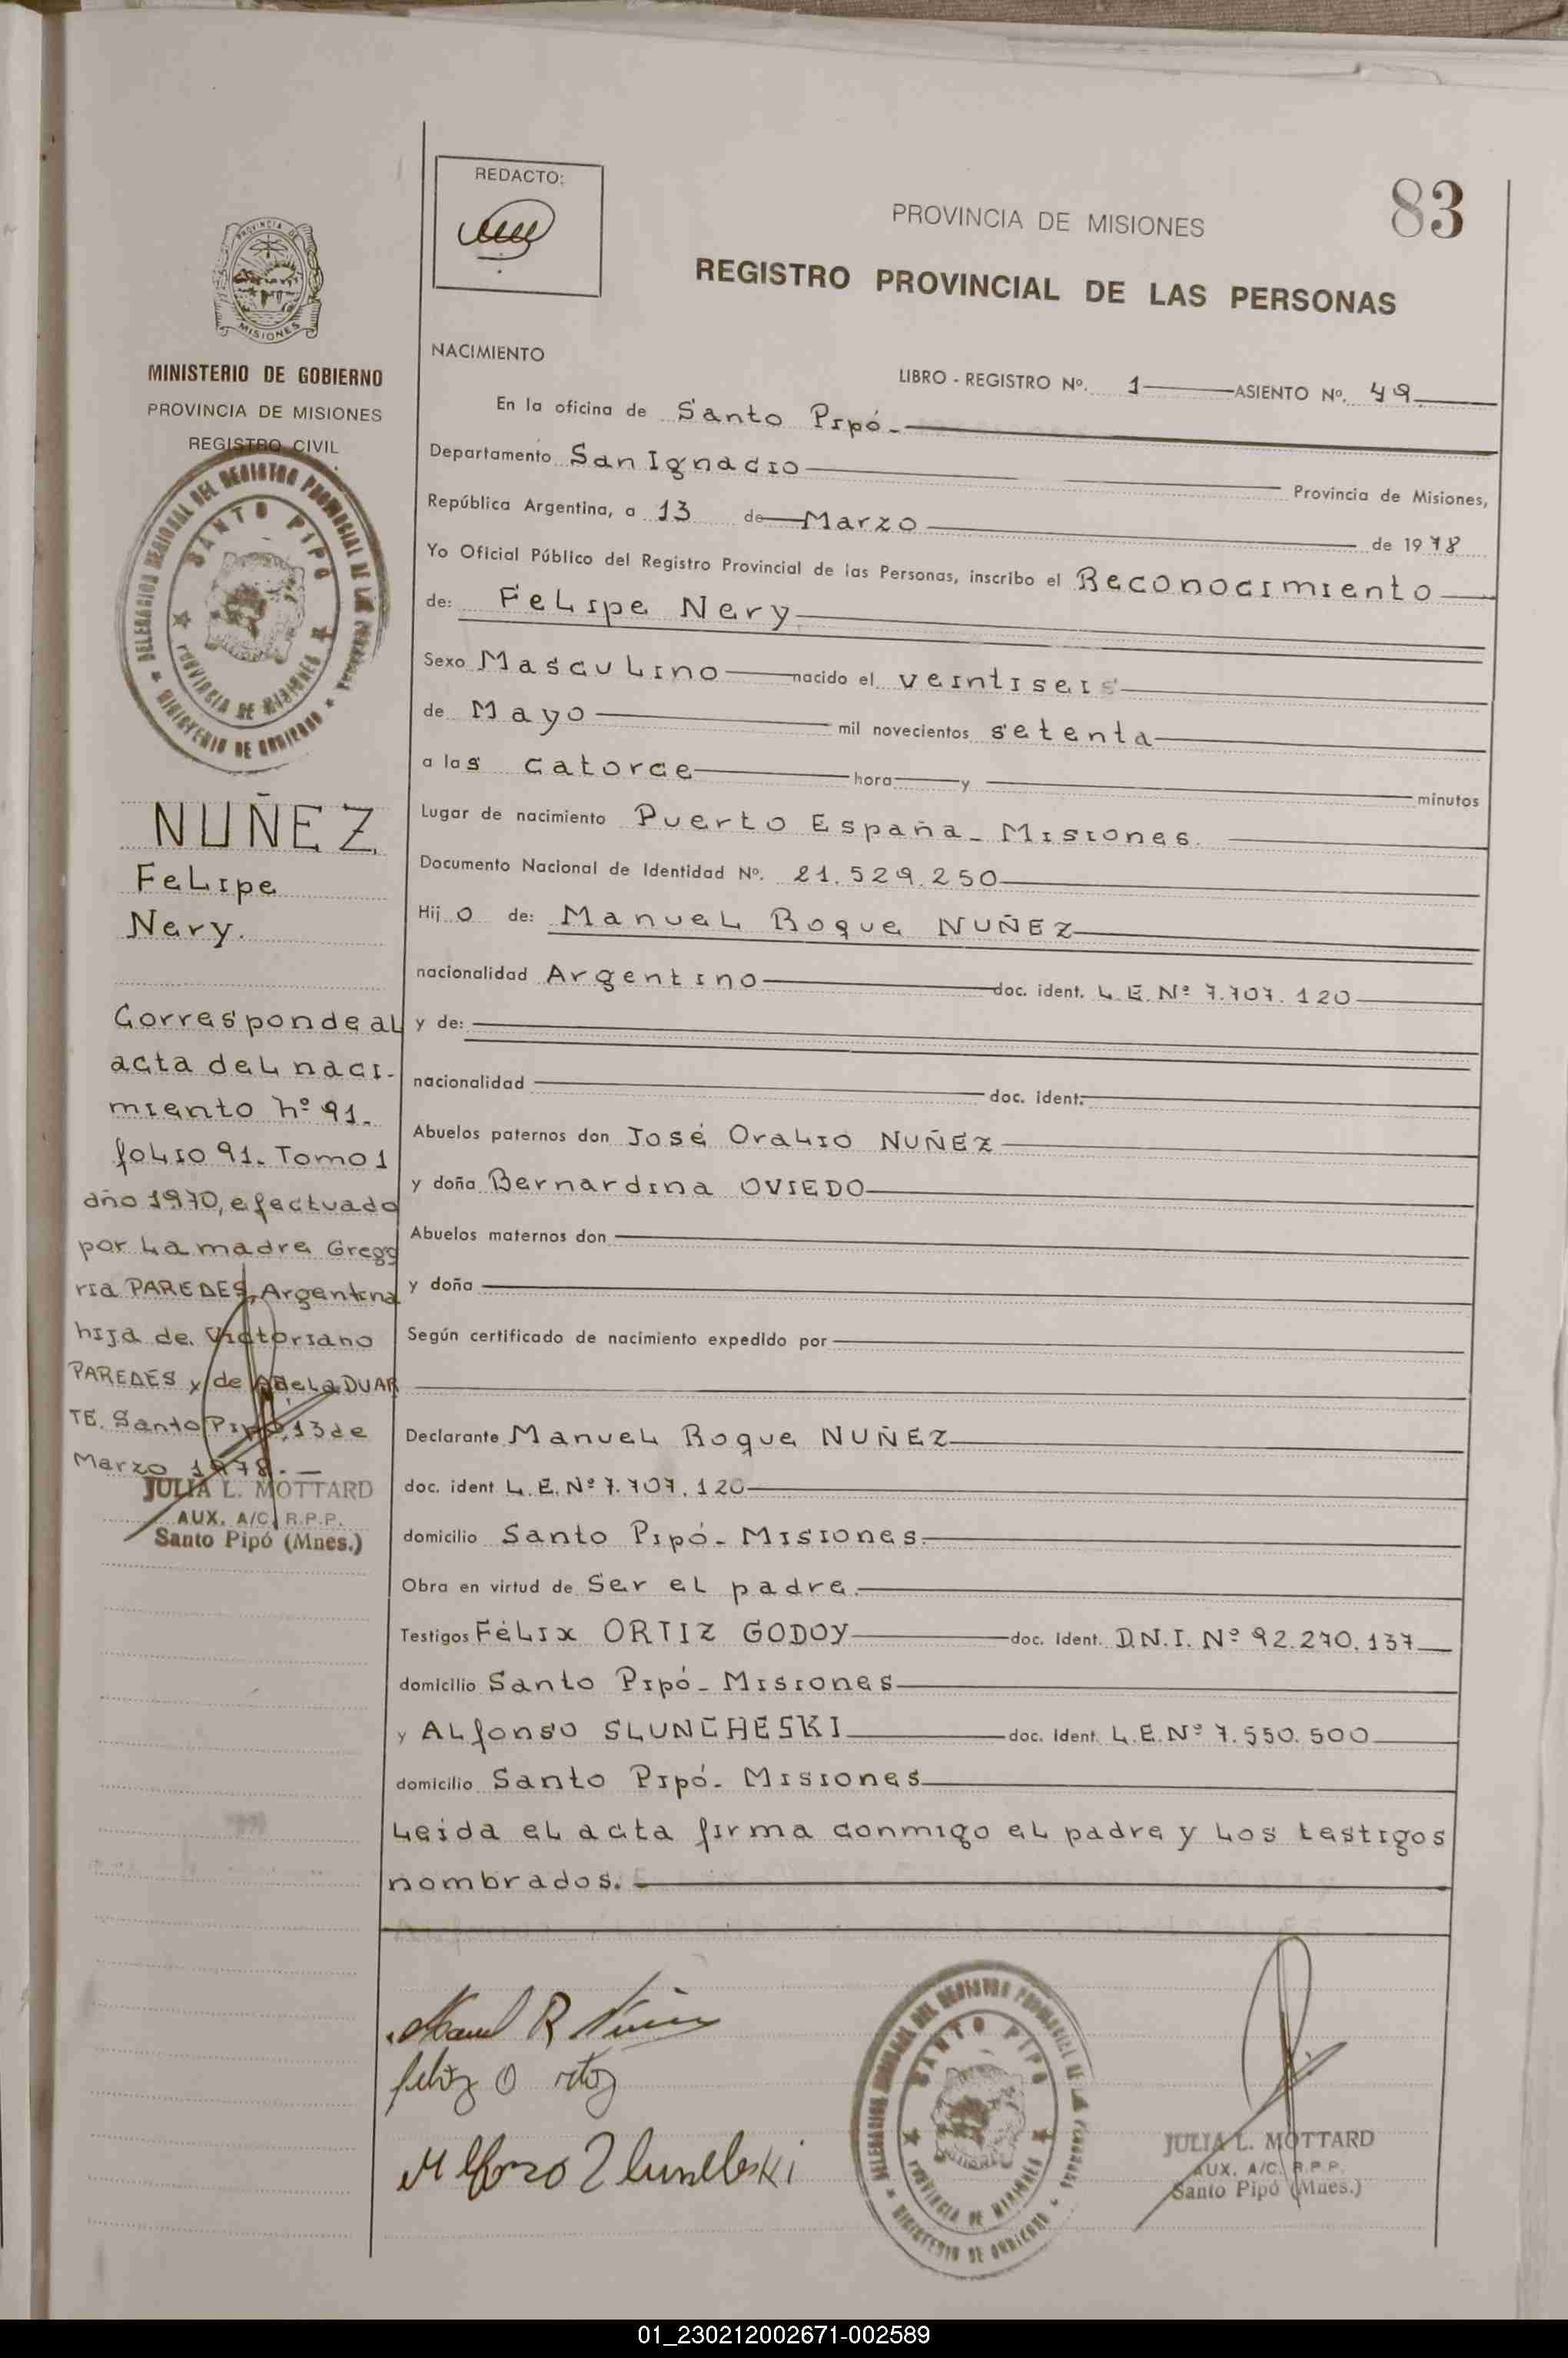 83
REDACTO:
PROVINCIA DE MISIONES
REGISTRO PROVINCIAL DE LAS PERSONAS
PROVINCIA DE
MISIONES
MINISTERIO DE GOBIERNO
PROVINCIA DE MISIONES
REGISTRO CIVIL
DELEGACION REGIONAL DEL REGISTRO PROVINCIAL DE LAS
SANTO PIPO
PROVINCIA DE MISIONES
MINISTERIO DE GOBIERNO
NUÑEZ
Felipe
Nery.
Corresponde al
acta del naci-
miento nº 91.
folio 91. Tomo 1
año 1970, efectuado
por la madre Grego
ria PAREDES, Argentina
hija de Victoriano
PAREDES y de Adela DUAR
TE. Santo Pipó, 13 de
Marzo 1978.-
JULIA L. MOTTARD
AUX. A/C. R.P.P.
Santo Pipó (Mnes.)
NACIMIENTO
LIBRO - REGISTRO Nº. 1 ASIENTO Nº. 49
En la oficina de Santo Pipó.-
Departamento San Ignacio Provincia de Misiones,
República Argentina, a 13 de Marzo de 1978
Yo Oficial Público del Registro Provincial de las Personas, inscribo el Reconocimiento
de: Felipe Nery
Sexo Masculino nacido el veintiseis
de Mayo mil novecientos setenta
a las catorce hora y minutos
Lugar de nacimiento Puerto España - Misiones.
Documento Nacional de Identidad Nº. 21.529.250
Hijo de: Manuel Roque NUÑEZ
nacionalidad Argentino doc. ident. L.E. Nº 7.707.120
y de:
nacionalidad doc. ident.
Abuelos paternos don José Oralio NUÑEZ
y doña Bernardina OVIEDO
Abuelos maternos don
y doña
Según certificado de nacimiento expedido por
Declarante Manuel Roque NUÑEZ
doc. ident L.E. Nº 7.707.120
domicilio Santo Pipó - Misiones.
Obra en virtud de Ser el padre.
Testigos Félix ORTIZ GODOY doc. Ident. D.N.I. Nº 92.270.137
domicilio Santo Pipó - Misiones
y Alfonso SLUNCHESKI doc. Ident. L.E. Nº 7.550.500
domicilio Santo Pipó - Misiones
Leida el acta firma conmigo el padre y los testigos
nombrados.
Manuel R Nuñez
feliz O rtiz
Alfonzo
DELEGACION REGIONAL DEL REGISTRO PROVINCIAL DE LAS
SANTO PIPO
PROVINCIA DE MISIONES
MINISTERIO DE GOBIERNO
JULIA L. MOTTARD
AUX. A/C. R.P.P.
Santo Pipó (Mnes.)
01_230212002671-002589